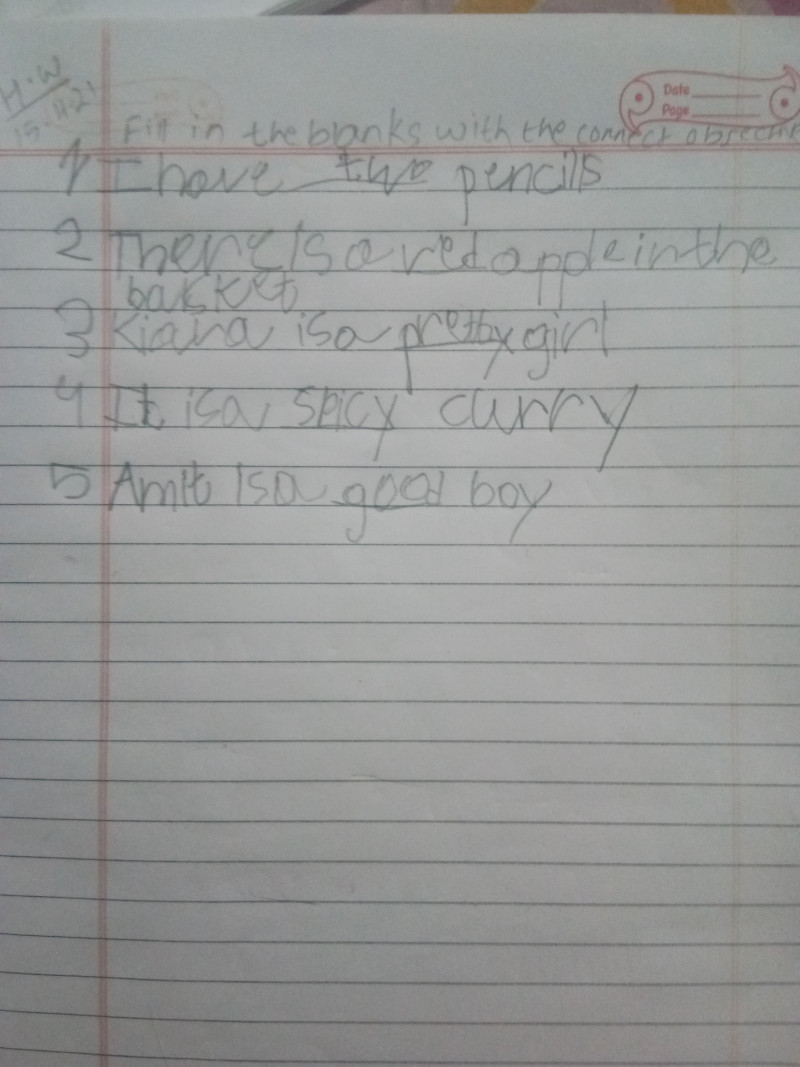 H.W
15.11.21
Date
Page
Fill in the blanks with the connect
1 I have two pencils
2 There Is a red apple in the
basket
3 Kiara is a pretty girl
4 It is a spicy curry
5 Amit Is a good boy